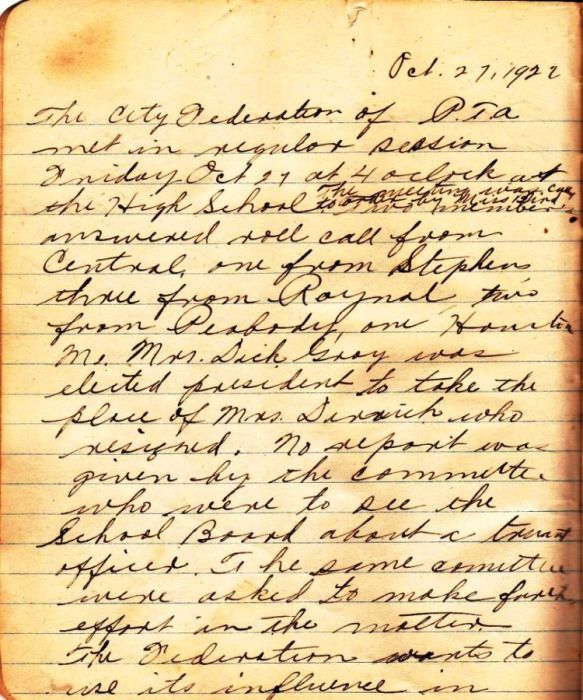 Oct. 27, 1922
The City Federation of P.T.A
met in regular session
Friday Oct 27 at 4 oclock at
The meeting was
the High School to order by Miss Bird Two members
answered roll call from
Central, one from Stephens
three from Raynal, two
from Peabody, one Houston
Mc. Mrs. Dick Gray was
elected president to take the
place of Mrs. who
resigned. No report was
given by the committee
who were to see the
School Board about a truant
officer. The same comittee
were asked to make
effort in the matter
The Federation wants to
use its influence in